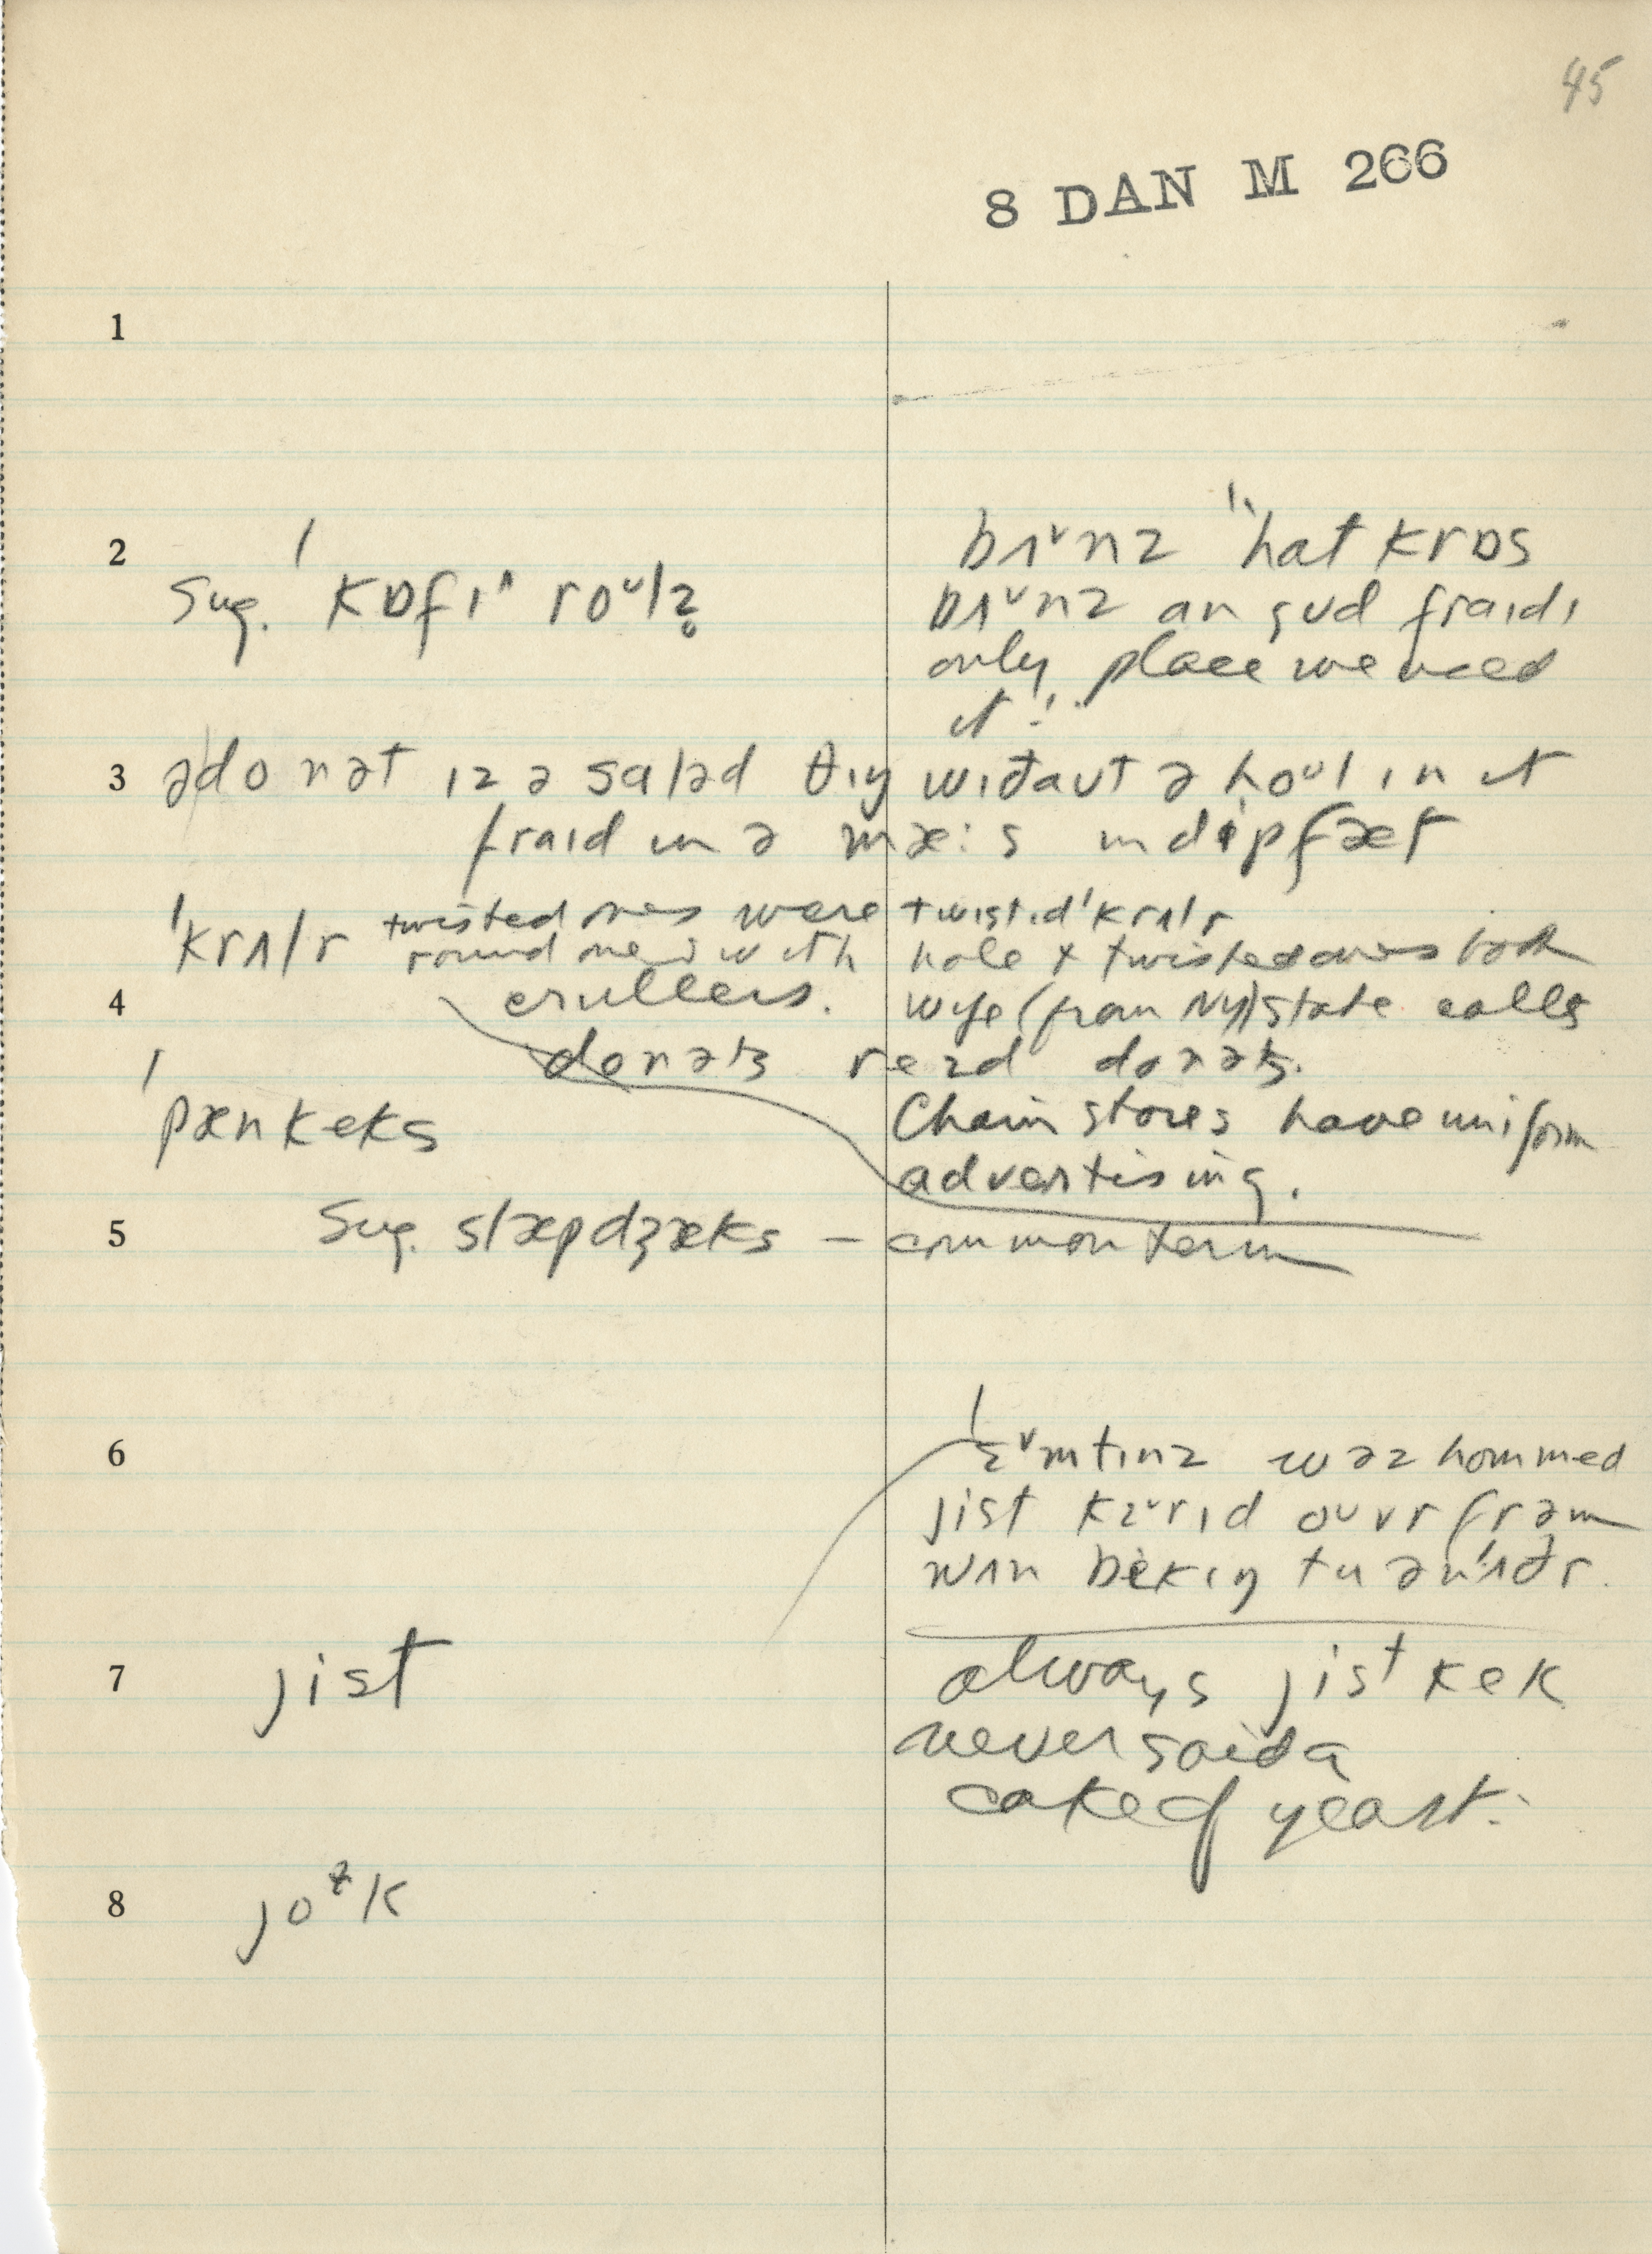 45
8 DAN M 266
1
2
sug. ˈkɒfɪ^ roᵘlz̥
bɪᵛnz "hat krɒs
bɪᵛnz an gud fraɪdɪ
only place we used
it"
3 ə donət ɪz ə saləd θɪŋ wɪðaut ə hoᵘl ɪn it
fraɪd in ə mæ:s in dip fæt
ˈkrʌlr twisted ones were twɪstɪdˈkrʌlr
round ones with hole & twisted ones both
4 crullers. wife (from NY) state calls
donəts read donəts.
ˈpænkeks
Chain stores have uniform
advertising.
5 sug. slæpdʒæks – common term
6
ˈɛᵛmtɪnz wəz hommed
jist kɛᵛrɪd ouvr frəm
wʌn bekɪŋ tu ənˈʌðr.
7 jist
always jist kek
never said a
cake of yeast.
8 joɫk